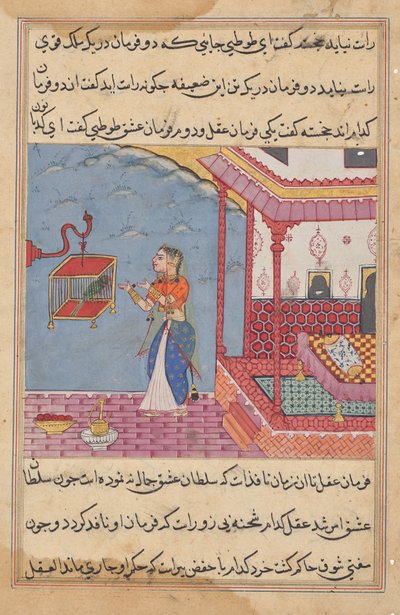 راست نیاید خجسته گفت ای طوطی جایی که دو فرمان در یک ملک قوی
راست نیاید دو فرمان در یک تن این ضعیفه چگونه راست اید گفت ان دو فرمان
کدام اند خجسته گفت یکی فرمان عقل و دوم فرمان عشق طوطی گفت ای کدبانون
فرمان عقل تا ان زمان نافذ است که سلطان عشق جمال نه نموده است چون سلطان
عشق اس شد عقل کدام شحنه بی زور است که فرمان او نافذ کردد و چون
مفتی شوق حاکم کشت خرد کدام که حکم او جاری ماند العقل